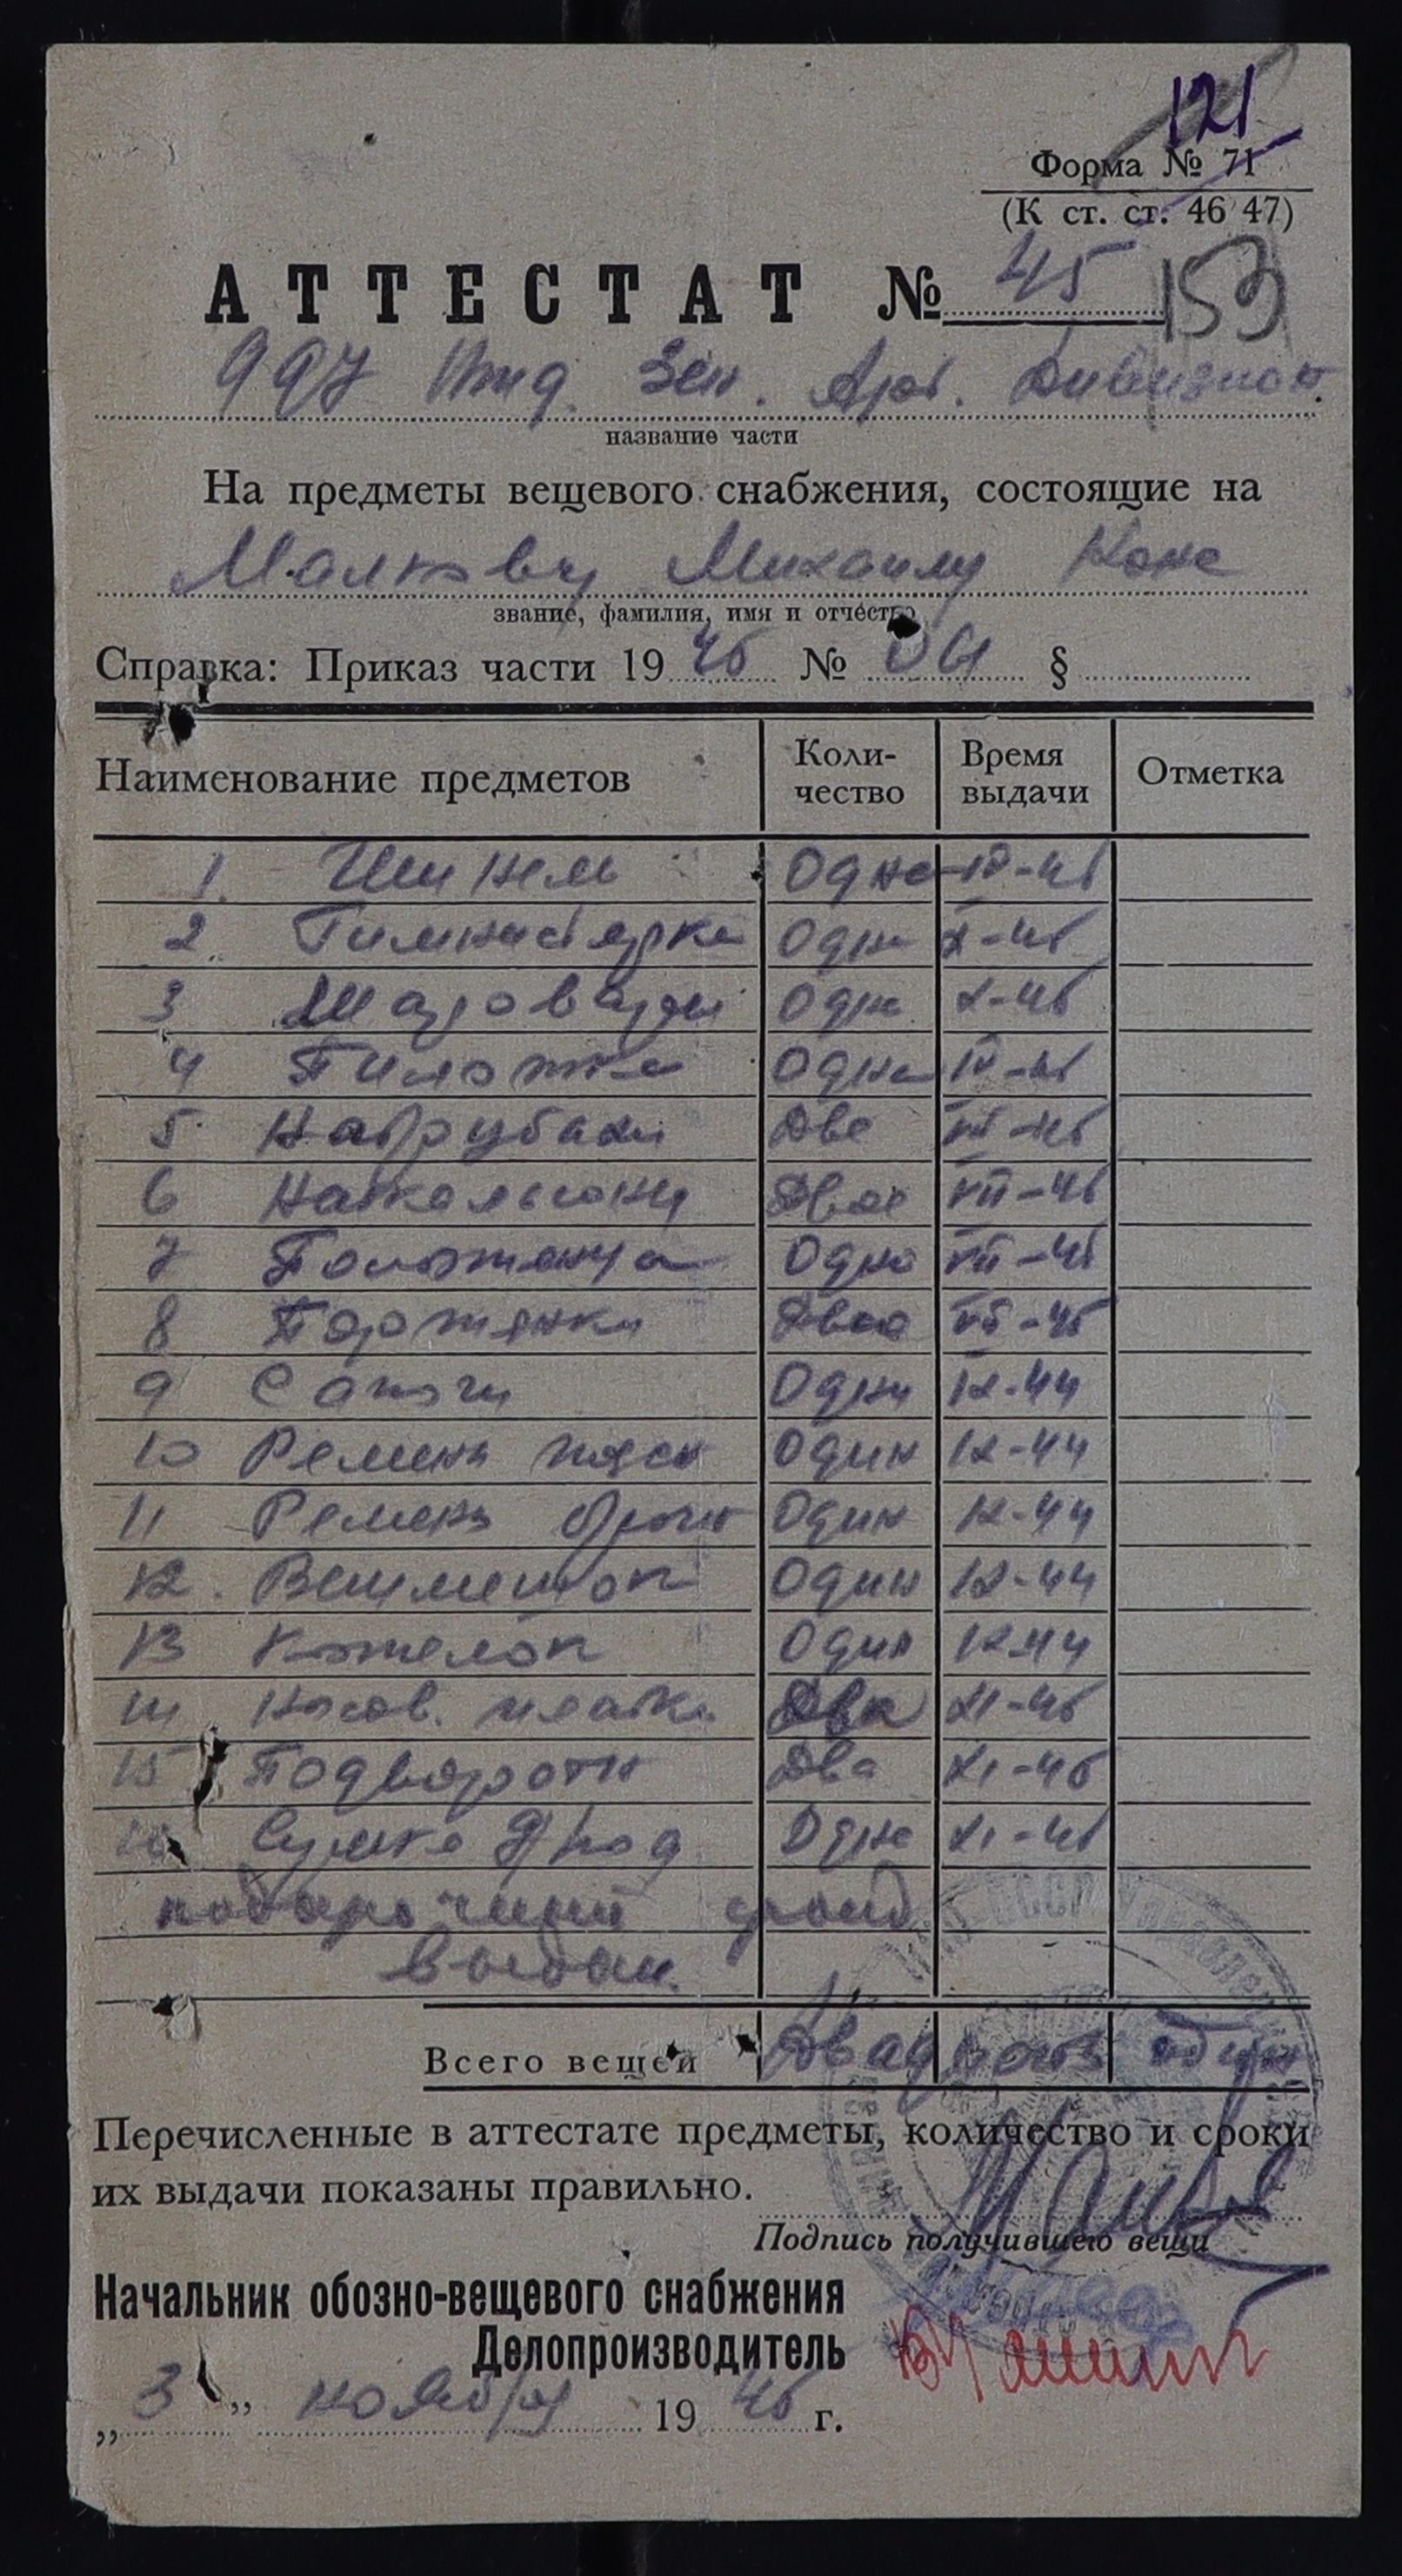 121
Форма № 71
(К ст. ст. 46 47)
АТТЕСТАТ № 45 153
997 Отд. Зен. Арт. Дивизион.
название части
На предметы вещевого снабжения, состоящие на
Малкову Михаилу
звание, фамилия, имя и отчество
Справка: Приказ части 19 45 № §
Наименование предметов Коли-чество Время выдачи Отметка
1. Шинель Одна
2. Гимнастерка Одна X-45
3 Шаровары Одне X-45
4 Пилотка Одна IV-45
5. Натрубахи Две VII-45
6 Накальсоны Двое VII-45
7 Полотенца Одно VII-45
8 Портянки Двое VII-45
9 Сапоги Одни 12-44
10 Ремень пояс Один 12-44
11 Ремень брючн Один 12-44
12. Вещмешок Один 12-44
13 Котелок Один 12-44
14 Носов. платки Два XI-45
15 Подворотн Два XI-45
16 Сумка Одна XI-45
подарочный фонд
выдан.
Всего вещей Двадцать один
Перечисленные в аттестате предметы, количество и сроки
их выдачи показаны правильно.
Подпись получившего вещи
Начальник обозно-вещевого снабжения
Делопроизводитель
„ 3 „ ноября 19 45 г.